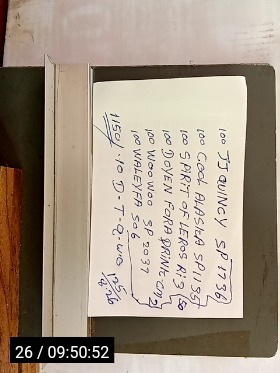 100 JJ QUINCY SP 1736
100 COOL ALASKA SP 11357
100 SPIRIT OF LEROS R: 3
100 DOYEN FORA DRINK
100 WOO WOO SP 2037
100 WALEYFA SO 6
1150/. 10 D-T-Q-WO
26 / 09:50:52